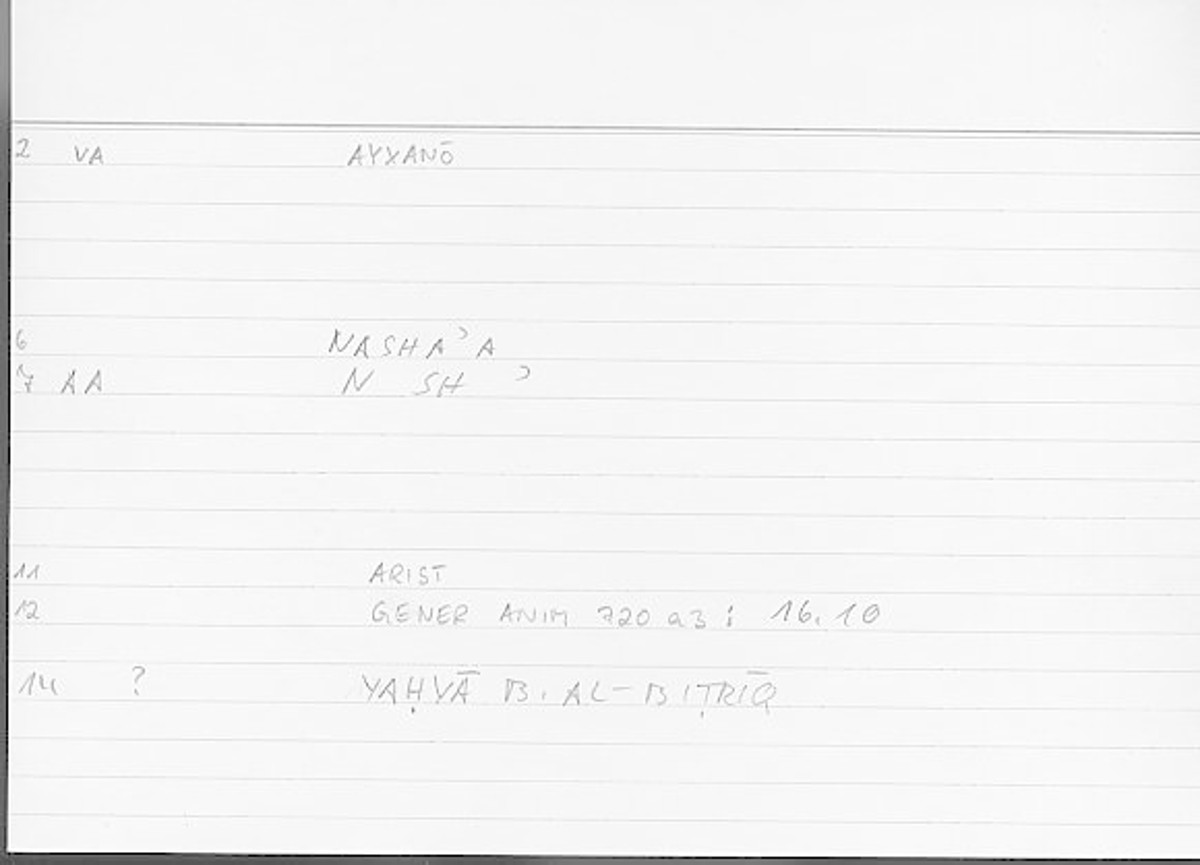 2 VA AYXANŌ
6 NASHAʾA
7 AA N SH ʾ
11 ARIST
12 GENER ANIM 720 a3 : 16.10
14 ? YAḤYĀ B. AL-BIṬRĪQ